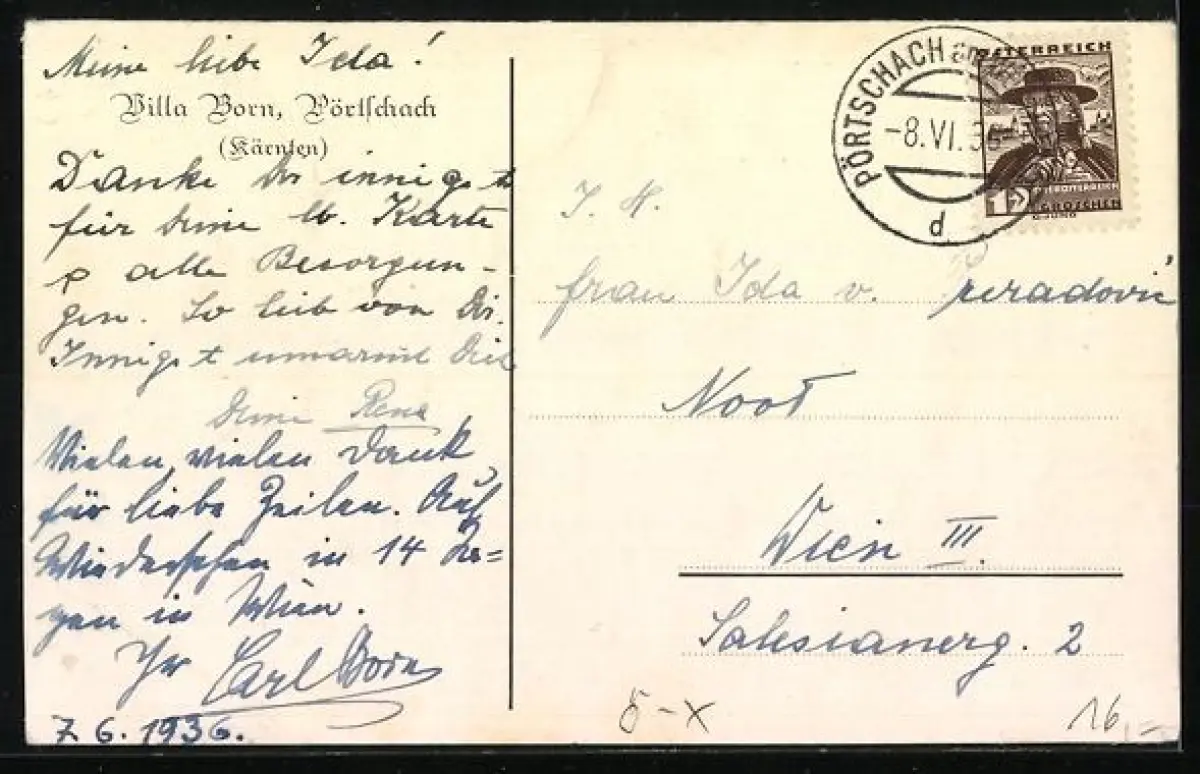 Meine liebe Ida!
Villa Born, Pörtschach
(Kärnten)
Danke Dir innigst
für Deine lb. Karte
& alle Besorgun-
gen. So lieb von Dir.
Innigst umarmt Dich
Deine Rena
Vielen, vielen Dank
für liebe Zeilen. Auf
Wiedersehen in 14 Ta=
gen in Wien.
Ihr Carl Born
7. 6. 1936.
PÖRTSCHACH am
-8.VI.36
d
ÖSTERREICH
GROSCHEN
I. H.
Frau Ida v. Preradović
Noot
Wien III.
Salesianerg. 2
5-X
16,-